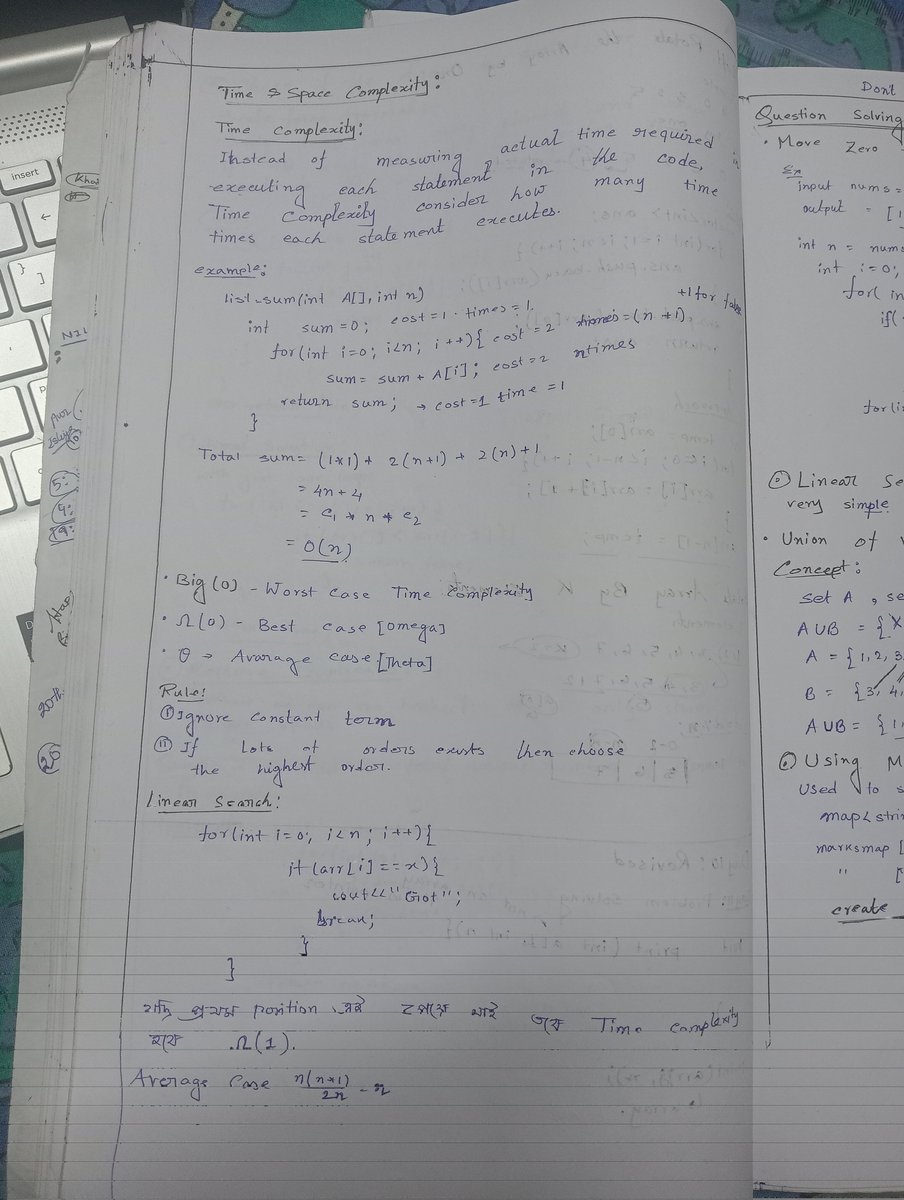 Time & Space Complexity:
Time Complexity:
Instead of measuring actual time required in
executing each statement in the code,
Time Complexity consider how many time
times each statement executes.
example:
list-sum(int A[], int n)
int sum = 0; cost = 1 . times = 1 +1 for false
for(int i=0; i<n; i++){ cost = 2 times = (n+1)
sum = sum + A[i]; cost = 2 n times
return sum; → cost = 1 time = 1
}
Total sum = (1*1) + 2(n+1) + 2(n) + 1
= 4n + 4
= c1 * n * c2
= O(n)
• Big(O) - Worst Case Time Complexity
• Ω(O) - Best case [Omega]
• θ → Avarage case [Theta]
Rule:
(i) Ignore constant term
(ii) If Lots of orders exists then choose
the highest order.
Linear Search:
for(int i=0; i<n; i++){
if (arr[i]==x){
cout<<"Got";
break;
}
}
যদি প্রথম position এই পেয়ে যাই তবে Time complexity
হবে Ω(1).
Average Case n(n+1)/2n = n
insert
Khai
NIL
20th
Dont
Question Solving
• Move Zero
Ex
input nums =
output = [1
int n = nums
int i=0;
for( in
if(
for(in
Linear Se
very simple
• Union of
Concept:
set A , se
AUB = {x
A = {1, 2, 3
B = {3, 4,
AUB = {1,
Using M
Used to s
map< strin
marksmap [
" [
create